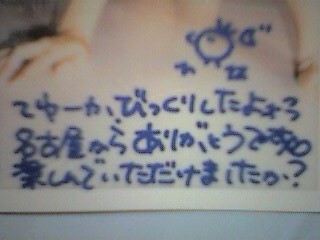 てゆーか、びっくりしたよォろ
名古屋からありがとうですね
楽しんでいただけましたか?